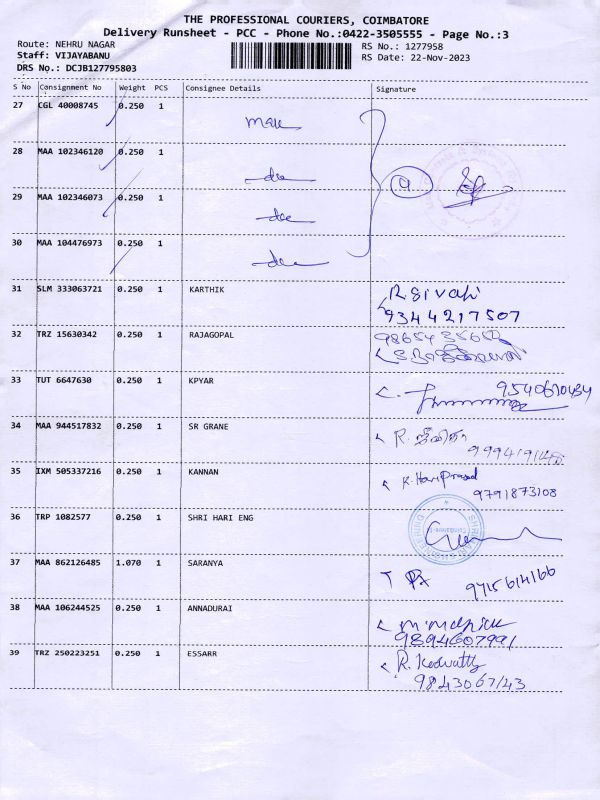 THE PROFESSIONAL COURIERS, COIMBATORE
Delivery Runsheet - PCC - Phone No.:0422-3505555 - Page No.:3
Route: NEHRU NAGAR
RS No.: 1277958
Staff: VIJAYABANU
RS Date: 22-Nov-2023
DRS No.: DCJB127795803
S No Consignment No Weight PCS Consignee Details Signature
27 CGL 40008745 0.250 1
28 MAA 102346120 0.250 1
29 MAA 102346073 0.250 1
30 MAA 104476973 0.250 1
31 SLM 333063721 0.250 1 KARTHIK R.
9344217507
32 TRZ 15630342 0.250 1 RAJAGOPAL
33 TUT 6647630 0.250 1 KPYAR
34 MAA 944517832 0.250 1 SR GRANE R.
35 IXM 505337216 0.250 1 KANNAN K. Hari Prasad
9791873108
36 TRP 1082577 0.250 1 SHRI HARI ENG
37 MAA 862126485 1.070 1 SARANYA
9715614166
38 MAA 106244525 0.250 1 ANNADURAI
9894607991
39 TRZ 250223251 0.250 1 ESSARR R.
9843067143